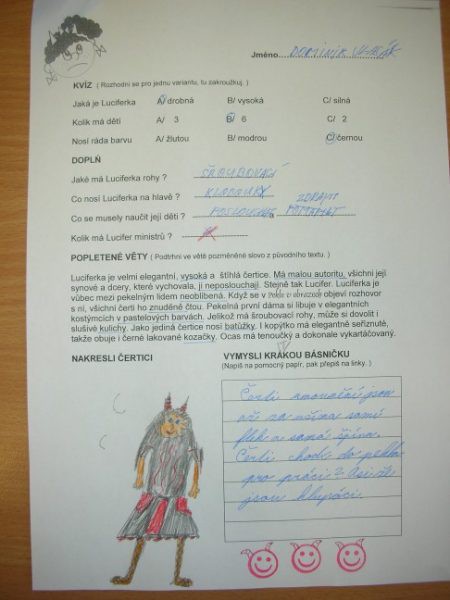 Jméno DOMINIK
KVÍZ ( Rozhodni se pro jednu variantu, tu zakroužkuj. )
Jaká je Luciferka A/ drobná B/ vysoká C/ silná
Kolik má dětí A/ 3 B/ 6 C/ 2
Nosí ráda barvu A/ žlutou B/ modrou C/ černou
DOPLŇ
Jaké má Luciferka rohy ? ŠROUBOVACÍ
Co nosí Luciferka na hlavě ? KLOBOUKY
Co se musely naučit její děti ? POSLOUCHAT a ZDRAVIT
Kolik má Lucifer ministrů ?
POPLETENÉ VĚTY ( Podtrhni ve větě pozměněné slovo z původního textu. )
Luciferka je velmi elegantní, vysoká a štíhlá čertice. Má malou autoritu, všichni její
synové a dcery, které vychovala, ji neposlouchají. Stejně tak Lucifer. Luciferka je
vůbec mezi pekelným lidem neoblíbená. Když se v objeví rozhovor
s ní, všichni čerti ho znuděně čtou. Pekelná první dáma si libuje v elegantních
kostýmcích v pastelových barvách. Jelikož má šroubovací rohy, může si dovolit i
slušivé kulichy. Jako jediná čertice nosí batůžky. I kopýtko má elegantně seříznuté,
takže obuje i černé lakované kozačky. Ocas má tenoučký a dokonale vykartáčovaný.
NAKRESLI ČERTICI
VYMYSLI KRÁKOU BÁSNIČKU
(Napiš na pomocný papír, pak přepiš na linky. )
Čerti jsou
až za ušima samý
flek a samá špína.
Čerti chodí do pekla
pro práci? Asi že
jsou hlupáci.